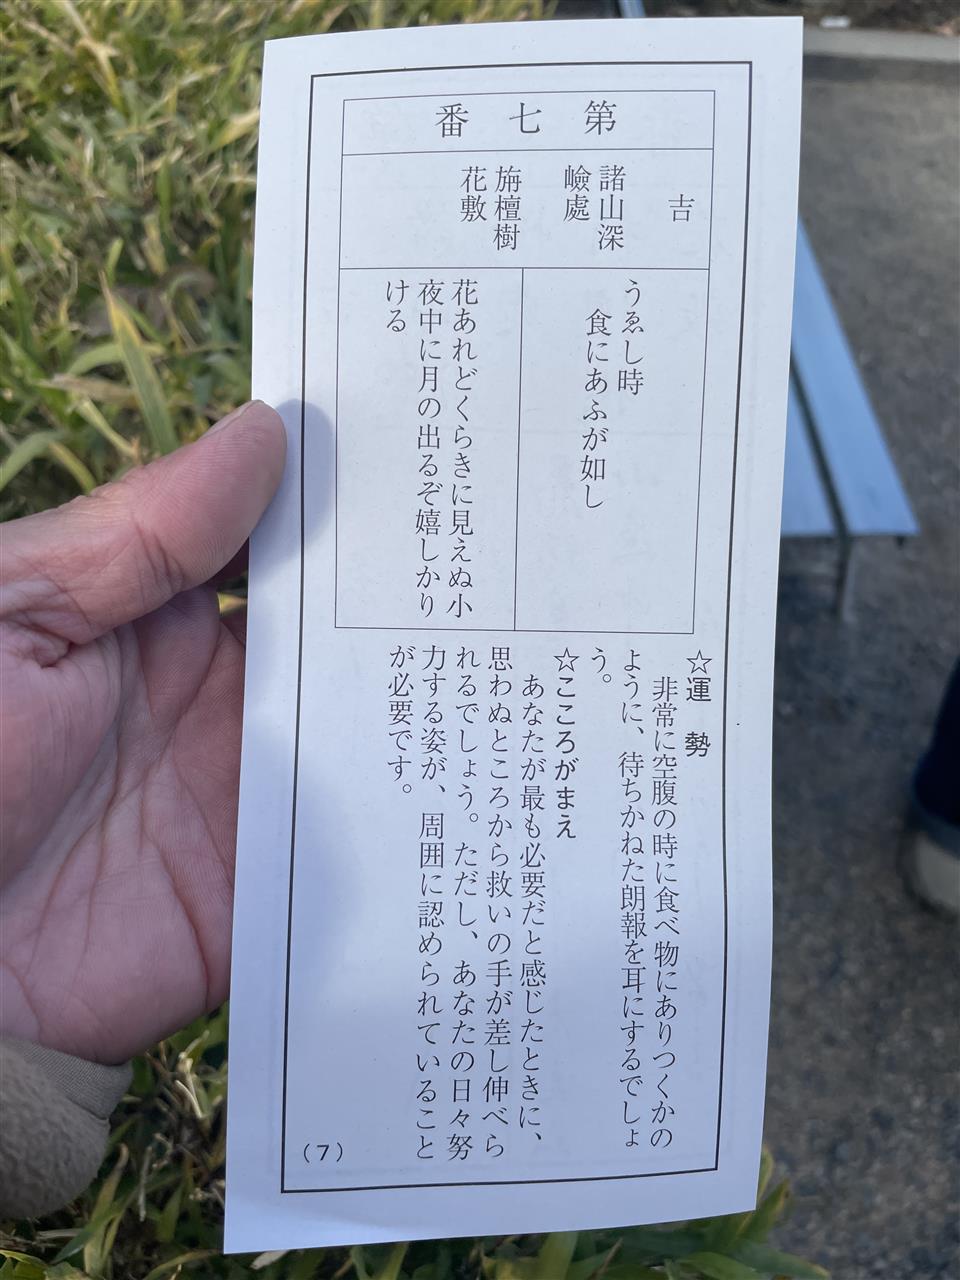 第七番
吉
諸山深
嶮處
旃檀樹
花敷
うゑし時
食にあふが如し
花あれどくらきに見えぬ小
夜中に月の出るぞ嬉しかり
ける
☆運 勢
非常に空腹の時に食べ物にありつくかの
ように、待ちかねた朗報を耳にするでしょ
う。
☆こころがまえ
あなたが最も必要だと感じたときに、
思わぬところから救いの手が差し伸べら
れるでしょう。ただし、あなたの日々努
力する姿が、周囲に認められていること
が必要です。
(7)